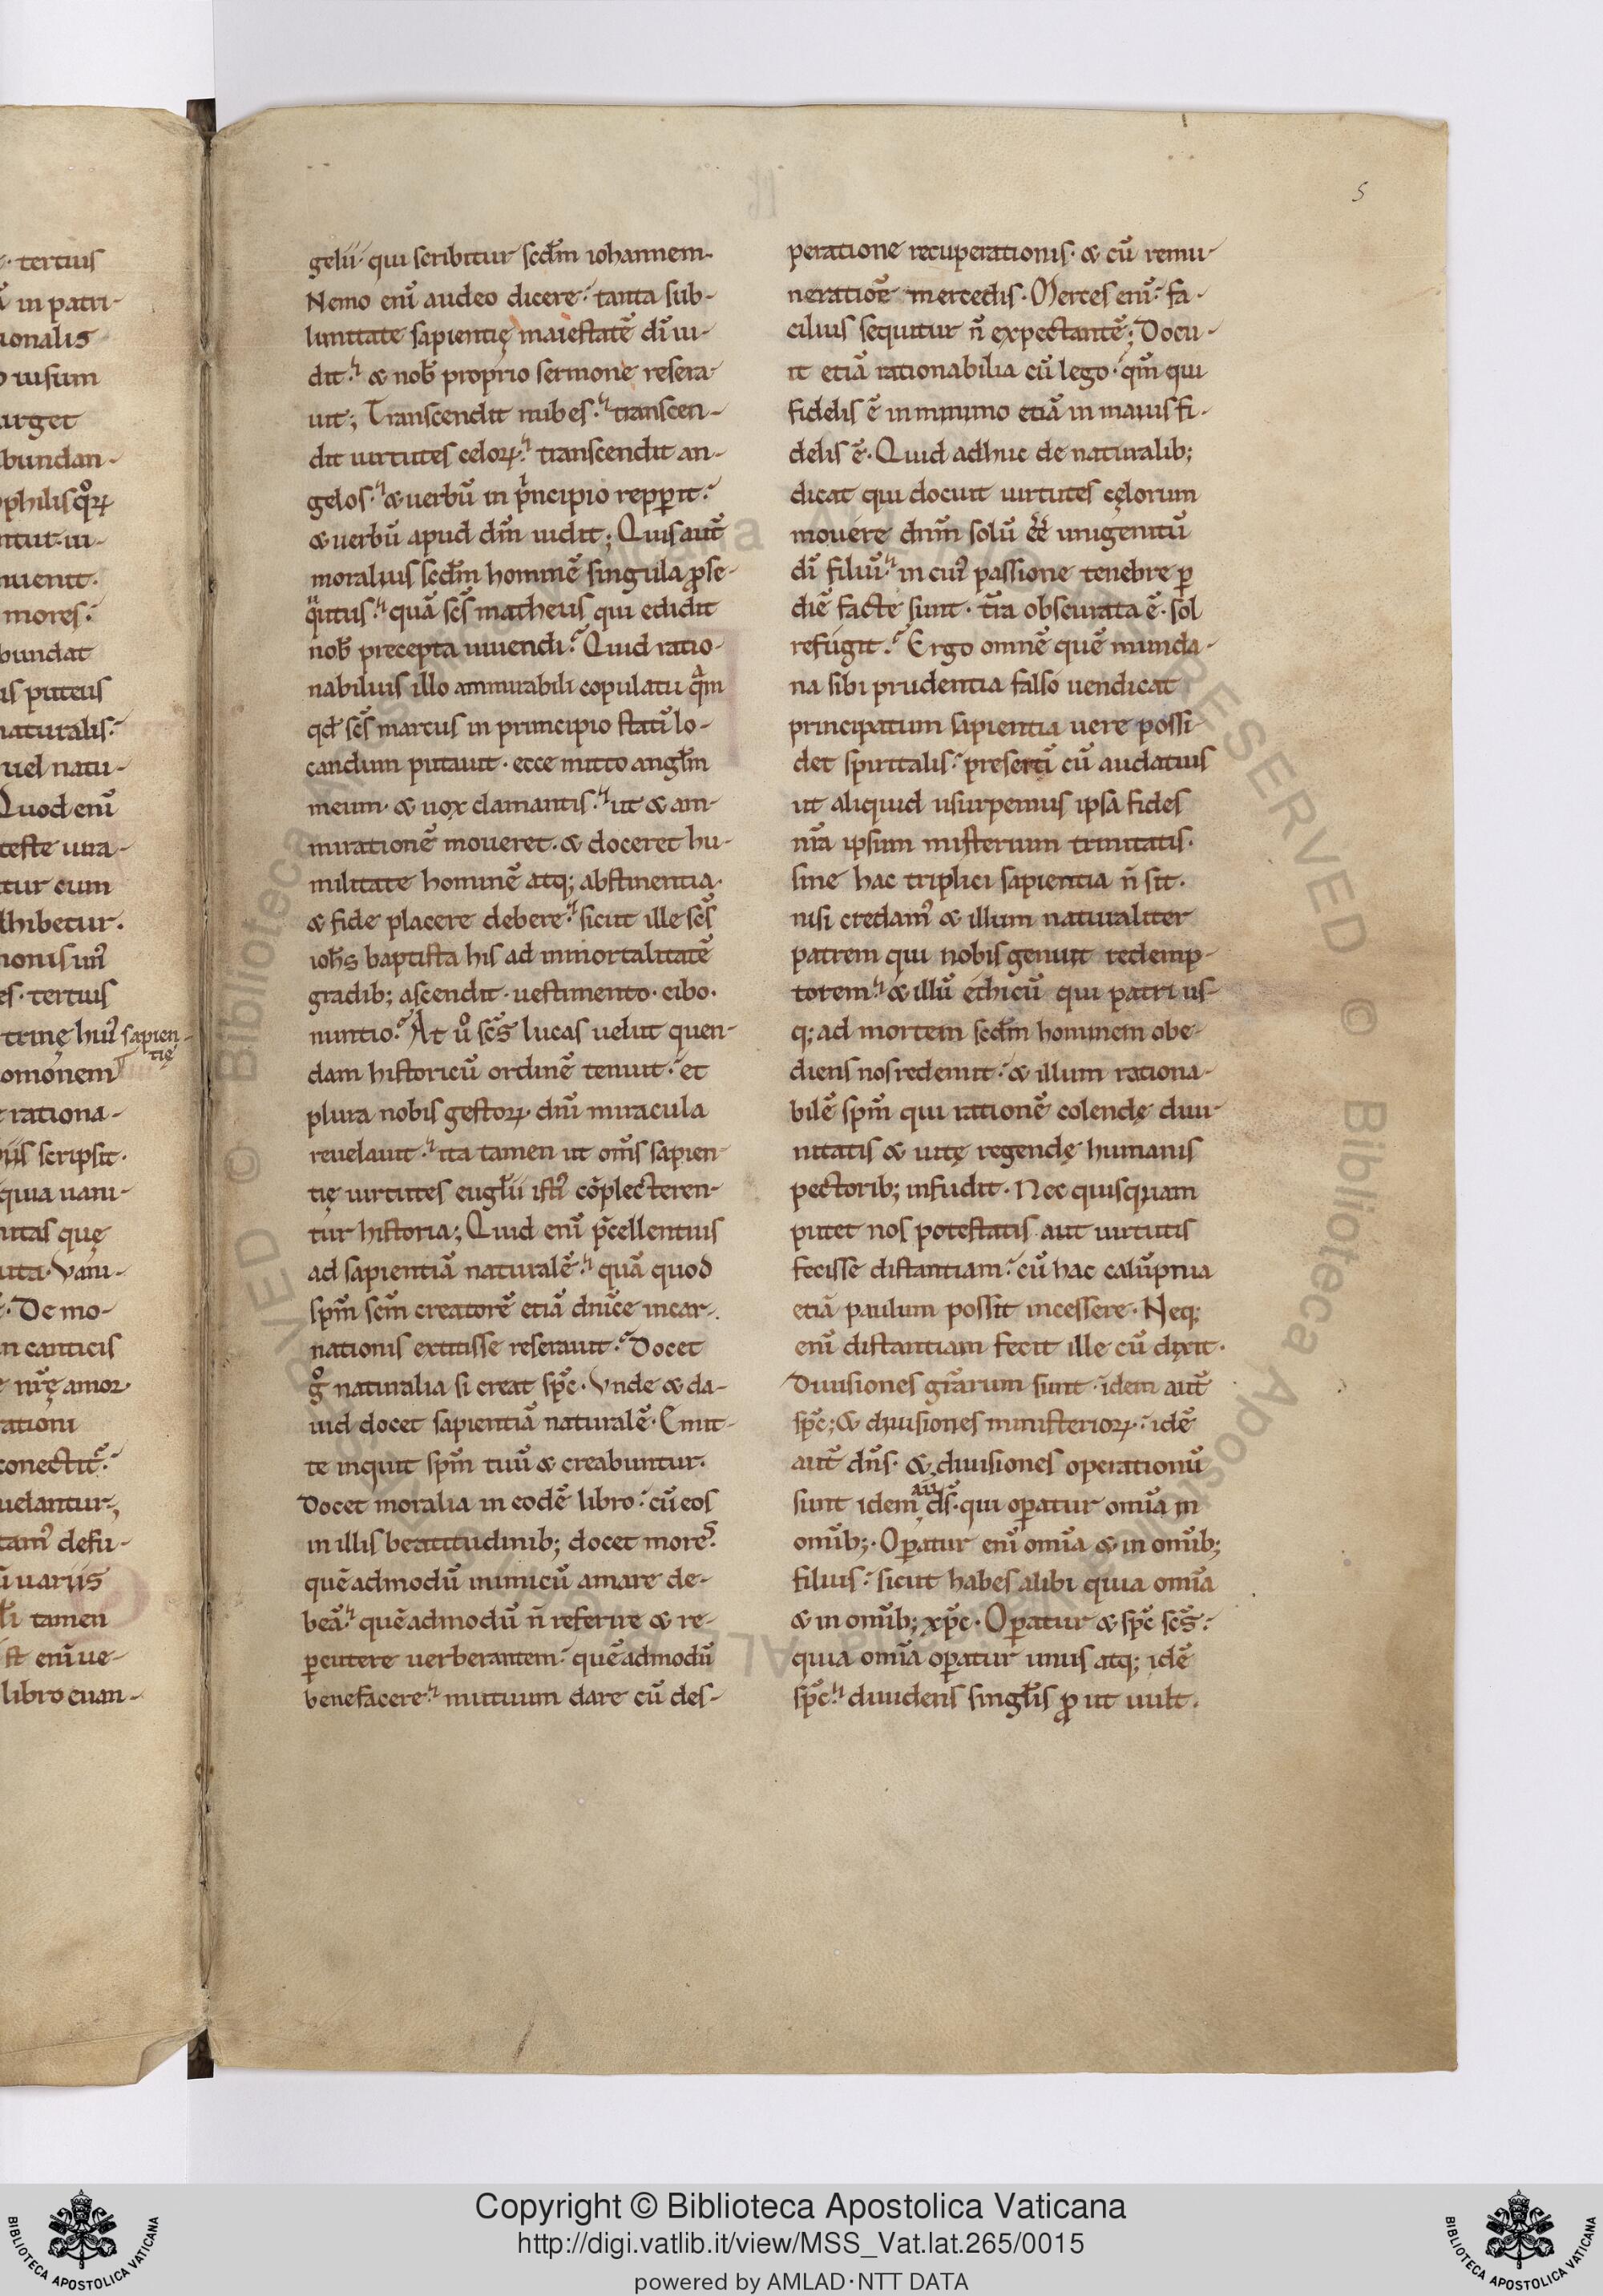 5
gelii· qui scribitur scdm̄ iohannem·
Nemo eni̅ audeo dicere· tanta sub-
limitate sapientię maiestatē dī ui-
dit· & nob̄ proprio sermone resera-
uit; Transcendit nubes· transcen-
dit uirtutes celoꝝ· transcendit an-
gelos· & uerbū in p̍ncipio repꝑit·
& uerbū apud dm̄ uidit; Quis aut̄
moralius scdm̄ hominē singula ꝓse-
qutus· quā scs̄ matheus qui edidit
nob̄ precepta uiuendi? Quid ratio-
nabilius illo ammirabili copulatu qm̄
qd̄ scs̄ marcus in principio statī lo-
candum putauit· ecce mitto anglm̄
meum· & uox clamantis· ut & am-
mirationē moueret· & doceret hu-
militate hominē atq; abstinentia·
& fide placere debere· sicut ille scs̄
ioh̄s baptista his ad inmortalitatē
gradib; ascendit· uestimento· cibo·
nuntio? At uº scs̄ lucas uelut quen-
dam historicū ordinē tenuit· et
plura nobis gestoꝝ dnī miracula
reuelauit· ita tamen ut om̄s sapien-
tię uirtutes euglii̅ isti᾽ cōplecteren-
tur historia; Quid eni̅ p̄cellentius
ad sapientiā naturalē· quā quod
spm̄ scm̄ creatorē etiā dnīce incar-
nationis extitisse reserauit? Docet
gº naturalia si creat spc̄· Vnde & da-
uid docet sapientiā naturalē· Emit-
te inquit spm̄ tuū & creabuntur·
Docet moralia in eodē libro· cū eos
in illis beatitudinib; docet more᾽·
quēadmodū inimicū amare de-
beā᾽· quēadmodū n̄ referire & re-
ꝑcutere uerberantem· quēadmodū
benefacere· mutuum dare cū des-
peratione recuperationis· & cū remu-
neratioē mercedis· Merces eni̅· fa-
cilius sequitur n̄ expectantē; Docu-
it etiā rationabilia cū lego· qm̄ qui
fidelis ē in minimo etiā in maius fi-
delis ē· Quid adhuc de naturalib;
dicat qui docuit uirtutes cęlorum
mouere dnm̄ solū ēē unigenitū
dī filiū· in cui᾽ passione tenebre ꝑ
diē facte sunt· tr̄a obscurata ē· sol
refugit? Ergo omnē quē munda-
na sibi prudentia falso uendicat
principatum sapientia uere possi-
det spiritalis· presertī cū audatius
ut aliquid usurpemus ipsa fides
nr̄a ipsum misterium trinitatis·
sine hac triplici sapientia n̄ sit·
nisi credam᾽ & illum naturaliter
patrem qui nobis genuit redemp-
torem· & illū ethicū qui patri us-
q; ad mortem scdm̄ hominem obe-
diens nos redemit· & illum rationa-
bilē spm̄ qui rationē colendę diui-
nitatis & uitę regendę humanis
pectorib; infudit· Nec quisquam
putet nos potestatis aut uirtutis
fecisse distantiam· cū hac calūpnia
etiā paulum possit incessere· Neq;
eni̅ distantiam fecit ille cū dixit·
Diuisiones gr̄arum sunt· idem aut̄
spc̄; & diuisiones ministerioꝝ· idē
aut̄ dn̄s· & diuisiones operationū
sunt idem au̅ ds̄· qui oꝑatur omīa in
omīb;· Oꝑatur eni̅ omīa & in omīb;
filius· sicut habes alibi quia omīa
& in omīb; xpc̄· Oꝑatur & spc̄ scs̄·
quia omīa oꝑatur unus atq; idē
spc̄· diuidens singlīs ꝓ ut uult·
Copyright © Biblioteca Apostolica Vaticana
http://digi.vatlib.it/view/MSS_Vat.lat.265/0015
powered by AMLAD·NTT DATA
BIBLIOTECA APOSTOLICA VATICANA
BIBLIOTECA APOSTOLICA VATICANA